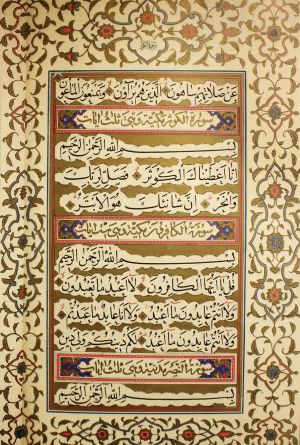 عَنْ صَلَاتِهِمْ سَاهُونَ الَّذِينَ هُمْ يُرَاؤُنَ وَيَمْنَعُونَ الْمَاعُونَ
سورة الكوثر مكية وهي ثلث ايات
بِسْمِ اللهِ الرَّحْمٰنِ الرَّحِيمِ
اِنَّا اَعْطَيْنَاكَ الْكَوْثَرَ فَصَلِّ لِرَبِّكَ
وَانْحَرْ اِنَّ شَانِئَكَ هُوَ الْاَبْتَرُ
سورة الكافرون مكية وهي ست ايات
بِسْمِ اللهِ الرَّحْمٰنِ الرَّحِيمِ
قُلْ يَا اَيُّهَا الْكَافِرُونَ لَا اَعْبُدُ مَا تَعْبُدُونَ
وَلَا اَنْتُمْ عَابِدُونَ مَا اَعْبُدُ وَلَا اَنَا عَابِدٌ مَا عَبَدْتُمْ
وَلَا اَنْتُمْ عَابِدُونَ مَا اَعْبُدُ لَكُمْ دِينُكُمْ وَلِيَ دِينِ
سورة النصر مدنية وهي ثلث ايات
بِسْمِ اللهِ الرَّحْمٰنِ الرَّحِيمِ